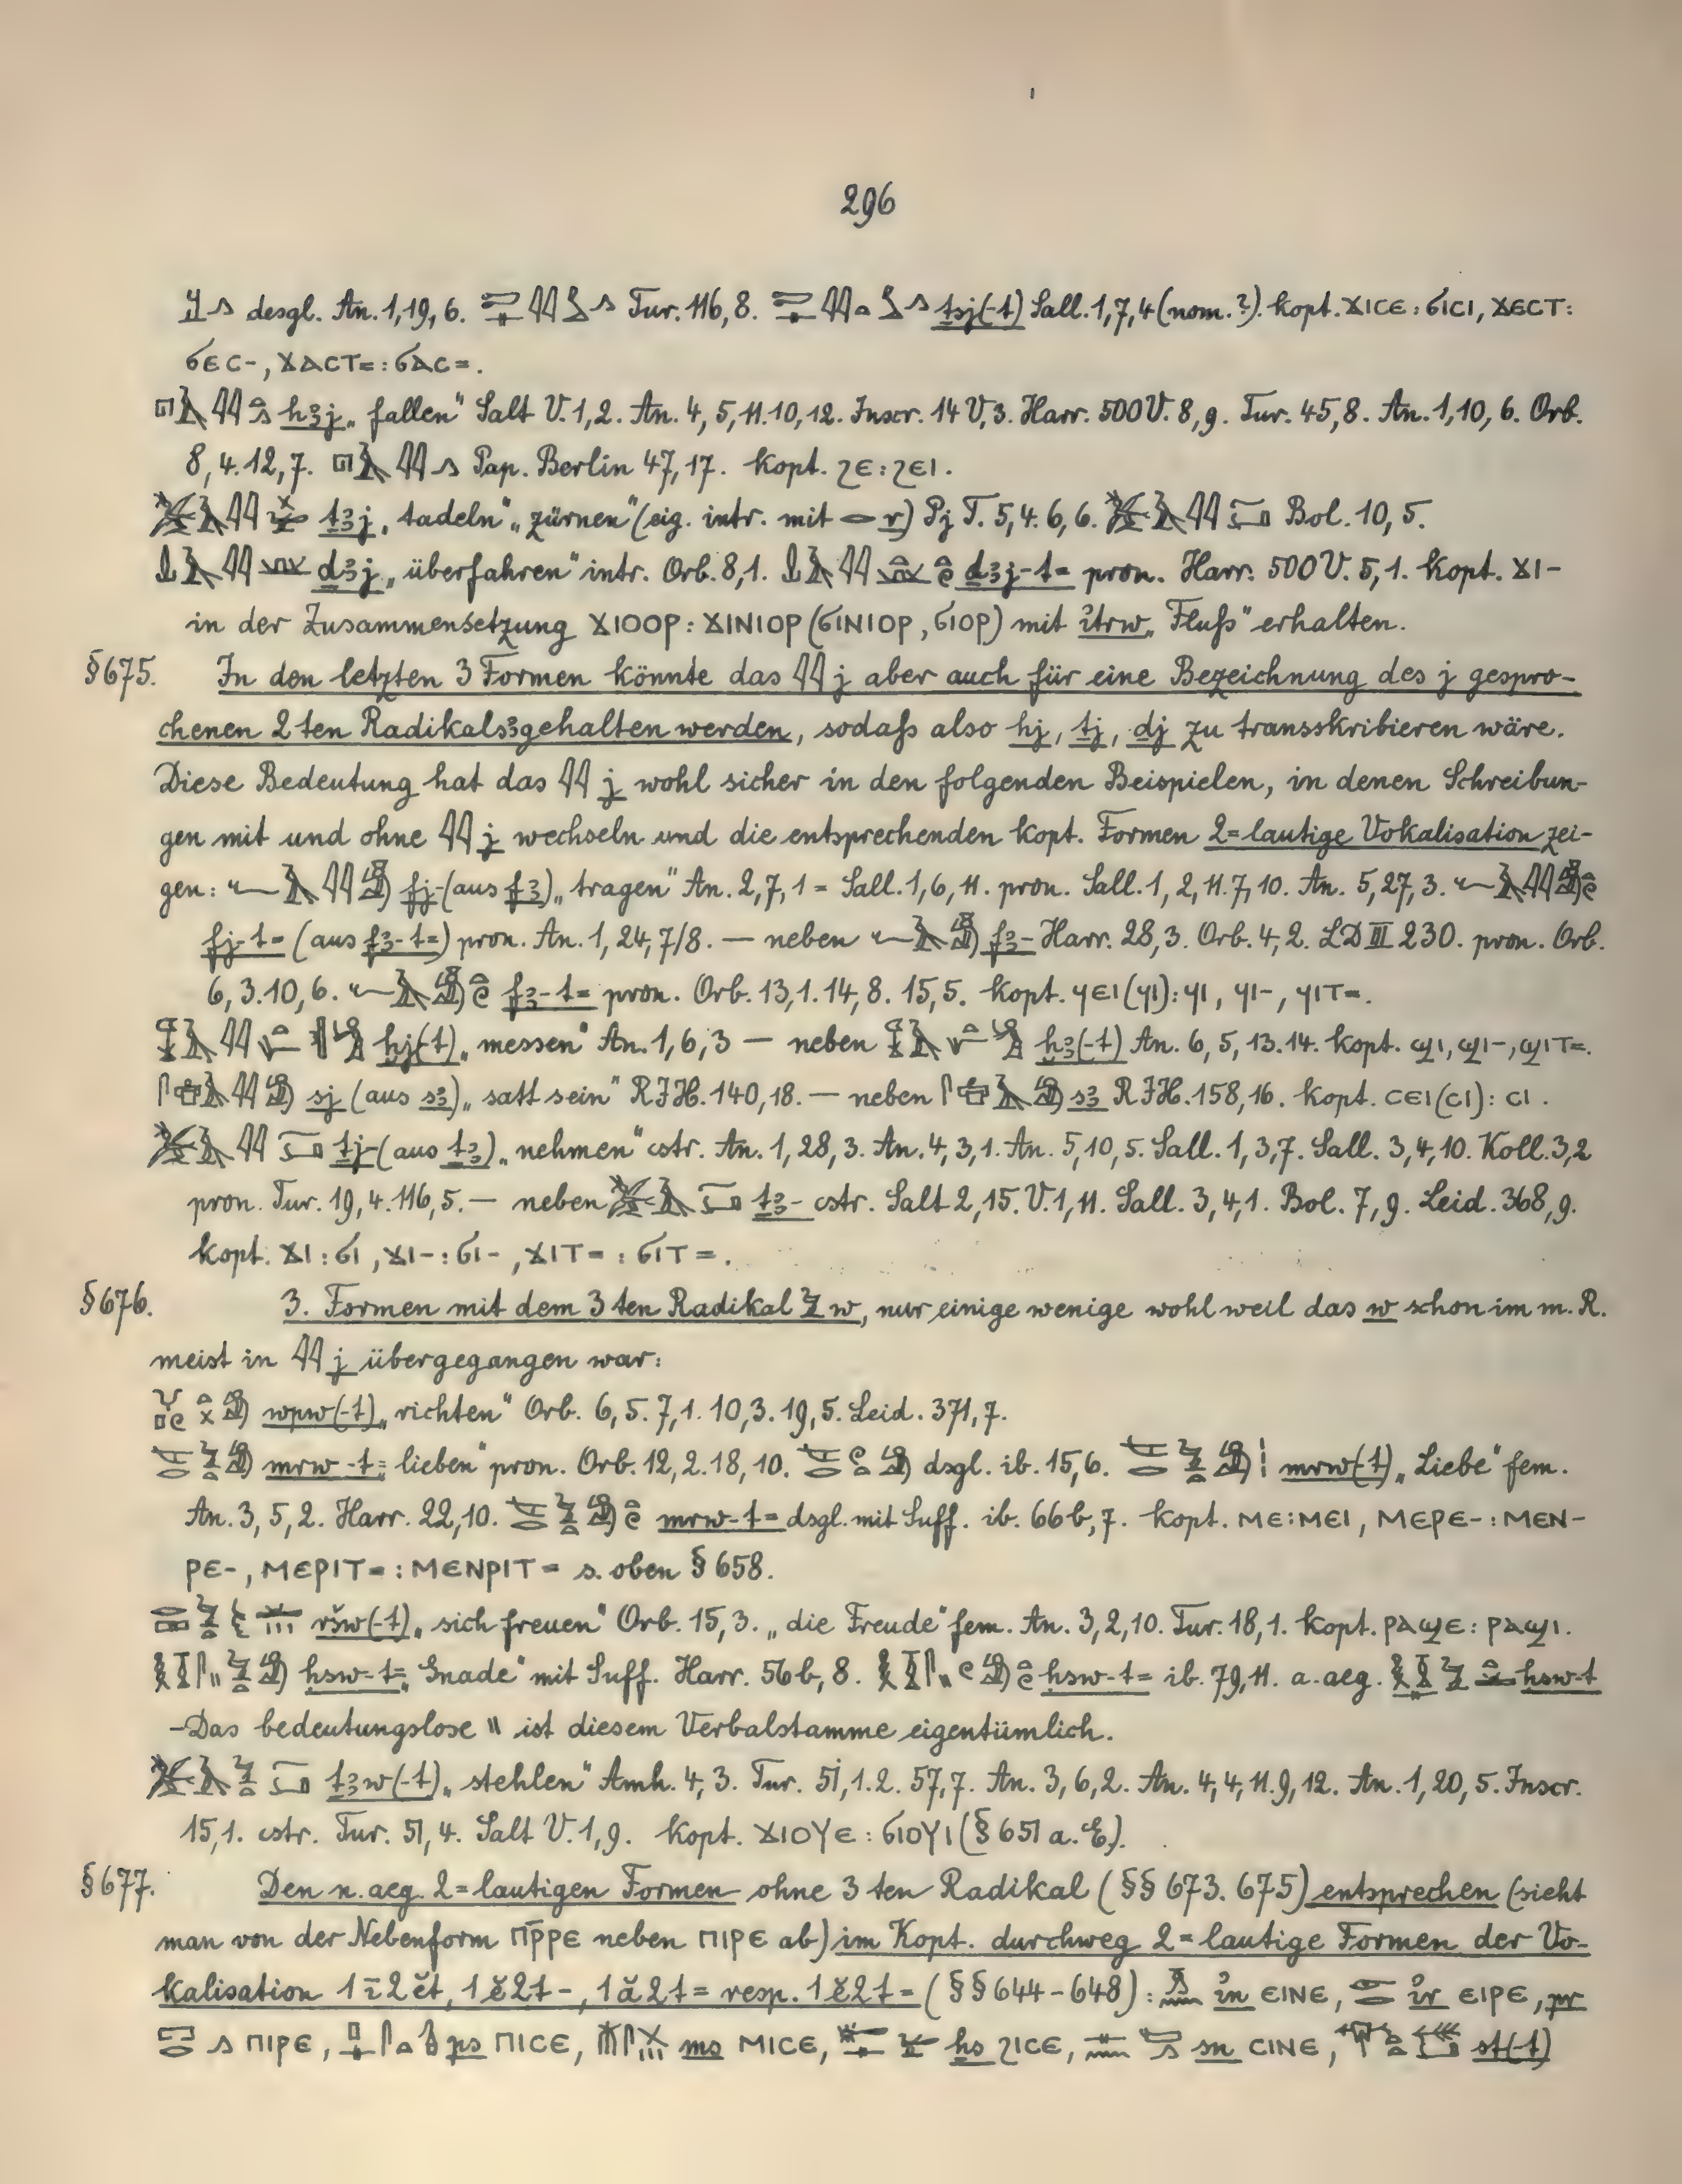 296
desgl. An. 1, 19, 6. Tur. 116, 8. ṯsj(-t) Sall. 1, 7, 4 (nom.?). kopt. ϪⲒⲤⲈ : ϬⲒⲤⲒ, ϪⲈⲤⲦ:
ϬⲈⲤ-, ϪⲀⲤⲦ= : ϬⲀⲤ=.
h3j „fallen“ Salt V. 1, 2. An. 4, 5, 11. 10, 12. Inscr. 14 V, 3. Harr. 500 V. 8, 9. Tur. 45, 8. An. 1, 10, 6. Orb.
8, 4. 12, 7. Pap. Berlin 47, 17. kopt. ϨⲈ : ϨⲈⲒ.
ṯ3j „tadeln“ „zürnen“ (eig. intr. mit r) Pj T. 5, 4. 6, 6. Bol. 10, 5.
ḏ3j „überfahren“ intr. Orb. 8, 1. ḏ3j-t= pron. Harr. 500 V. 5, 1. kopt. ϪⲒ-
in der Zusammensetzung ϪⲒⲞⲞⲢ : ϪⲒⲚⲒⲞⲢ (ϬⲒⲚⲒⲞⲢ, ϬⲒⲞⲢ) mit ỉtrw „Fluß“ erhalten.
§ 675. In den letzten 3 Formen könnte das 𓇌 j aber auch für eine Bezeichnung des j gespro-
chenen 2ten Radikals 3 gehalten werden, sodaß also hj, ṯj, ḏj zu transskribieren wäre.
Diese Bedeutung hat das 𓇌 j wohl sicher in den folgenden Beispielen, in denen Schreibun-
gen mit und ohne 𓇌 j wechseln und die entsprechenden kopt. Formen 2=lautige Vokalisation zei-
gen: fj- (aus f3) „tragen“ An. 2, 7, 1 = Sall. 1, 6, 11. pron. Sall. 1, 2, 11. 7, 10. An. 5, 27, 3.
fj-t= (aus f3-t=) pron. An. 1, 24, 7/8. — neben f3- Harr. 28, 3. Orb. 4, 2. LD III 230. pron. Orb.
6, 3. 10, 6. f3-t= pron. Orb. 13, 1. 14, 8. 15, 5. kopt. ϤⲈⲒ (ϤⲒ) : ϤⲒ, ϤⲒ-, ϤⲒⲦ=.
ḫj(-t) „messen“ An. 1, 6, 3 — neben ḫ3(-t) An. 6, 5, 13. 14. kopt. ϢⲒ, ϢⲒ-, ϢⲒⲦ=.
sj (aus s3) „satt sein“ RJH. 140, 18. — neben s3 RJH. 158, 16. kopt. ⲤⲈⲒ (ⲤⲒ) : ⲤⲒ.
ṯj- (aus ṯ3) „nehmen“ cstr. An. 1, 28, 3. An. 4, 3, 1. An. 5, 10, 5. Sall. 1, 3, 7. Sall. 3, 4, 10. Koll. 3, 2
pron. Tur. 19, 4. 116, 5. — neben ṯ3- cstr. Salt 2, 15. V. 1, 11. Sall. 3, 4, 1. Bol. 7, 9. Leid. 368, 9.
kopt. ϪⲒ : ϬⲒ, ϪⲒ- : ϬⲒ-, ϪⲒⲦ= : ϬⲒⲦ=.
§ 676. 3. Formen mit dem 3ten Radikal w, nur einige wenige wohl weil das w schon im m. R.
meist in 𓇌 j übergegangen war:
wpw(-t) „richten“ Orb. 6, 5. 7, 1. 10, 3. 19, 5. Leid. 371, 7.
mrw-t= „lieben“ pron. Orb. 12, 2. 18, 10. dsgl. ib. 15, 6. mrw(-t) „Liebe“ fem.
An. 3, 5, 2. Harr. 22, 10. mrw-t= dsgl. mit Suff. ib. 66b, 7. kopt. ⲘⲈ : ⲘⲈⲒ, ⲘⲈⲢⲈ- : ⲘⲈⲚ-
ⲢⲈ-, ⲘⲈⲢⲒⲦ= : ⲘⲈⲚⲢⲒⲦ= s. oben § 658.
ršw(-t) „sich freuen“ Orb. 15, 3. „die Freude“ fem. An. 3, 2, 10. Tur. 18, 1. kopt. ⲢⲀϢⲈ : ⲢⲀϢⲒ.
ḥsw-t= „Gnade“ mit Suff. Harr. 56b, 8. ḥsw-t= ib. 79, 11. a. aeg. ḥsw-t
-Das bedeutungslose \\ ist diesem Verbalstamme eigentümlich.
ṯ3w(-t) „stehlen“ Amh. 4, 3. Tur. 51, 1. 2. 57, 7. An. 3, 6, 2. An. 4, 4, 11. 9, 12. An. 1, 20, 5. Inscr.
15, 1. cstr. Tur. 51, 4. Salt V. 1, 9. kopt. ϪⲒⲞⲨⲈ : ϬⲒⲞⲨⲒ (§ 651 a. E.).
§ 677. Den n. aeg. 2=lautigen Formen ohne 3ten Radikal (§§ 673. 675) entsprechen (sieht
man von der Nebenform ⲠⲢ̄ⲢⲈ neben ⲠⲒⲢⲈ ab) im Kopt. durchweg 2=lautige Formen der Vo-
kalisation 1ī2ĕt, 1ĕ2t-, 1ă2t= resp. 1ĕ2t= (§§ 644-648): ỉn ⲈⲒⲚⲈ, ỉr ⲈⲒⲢⲈ, pr
ⲠⲒⲢⲈ, ps ⲠⲒⲤⲈ, ms ⲘⲒⲤⲈ, ḥs ϨⲒⲤⲈ, sn ⲤⲒⲚⲈ, st(-t)